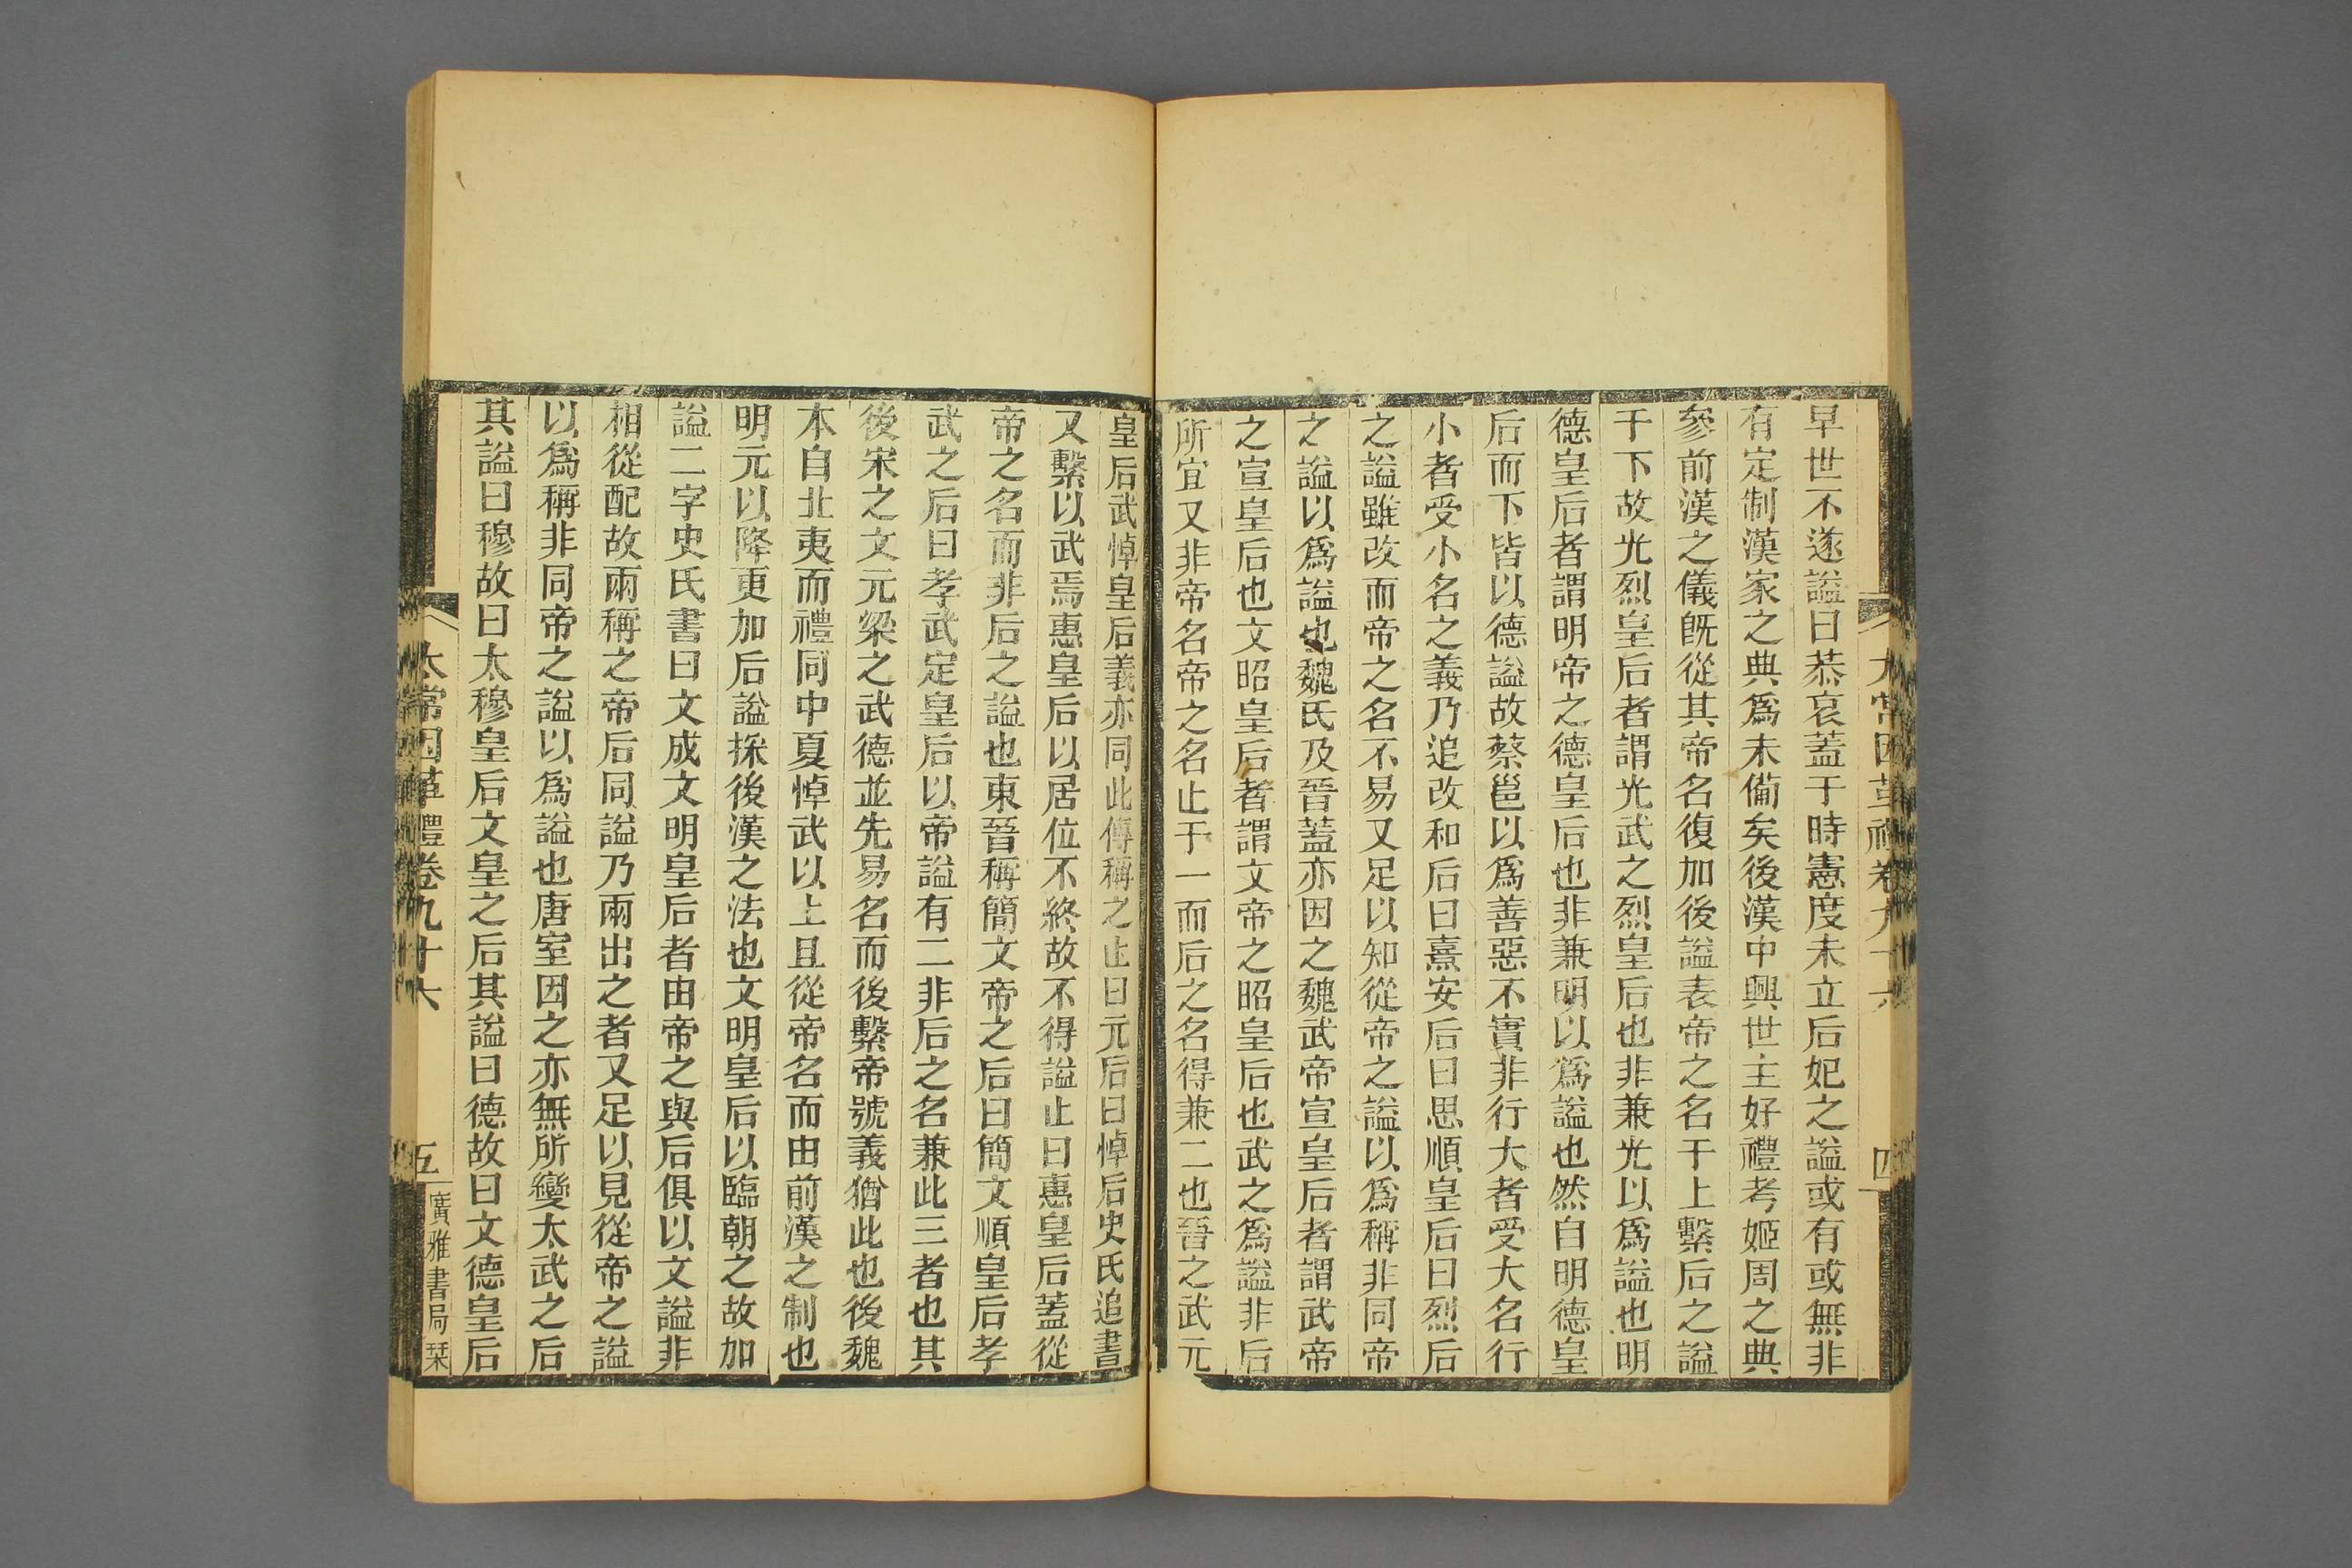 太常因革禮卷九十六
四
早世不遂謚曰恭哀蓋于時憲度未立后妃之謚或有或無非
有定制漢家之典爲未備矣後漢中興世主好禮考姬周之典
參前漢之儀旣從其帝名復加後謚表帝之名于上繫后之謚
于下故光烈皇后者謂光武之烈皇后也非兼光以爲謚也明
德皇后者謂明帝之德皇后也非兼明以爲謚也然自明德皇
后而下皆以德謚故蔡邕以爲善惡不實非行大者受大名行
小者受小名之義乃追改和后曰熹安后曰思順皇后曰烈后
之謚雖改而帝之名不易又足以知從帝之謚以爲稱非同帝
之謚以爲謚也魏氏及晉蓋亦因之魏武帝宣皇后者謂武帝
之宣皇后也文昭皇后者謂文帝之昭皇后也武之爲謚非后
所宜又非帝名帝之名止于一而后之名得兼二也晉之武元
皇后武悼皇后義亦同此傳稱之止曰元后曰悼后史氏追書
又繫以武焉惠皇后以居位不終故不得謚止曰惠皇后蓋從
帝之名而非后之謚也東晉稱簡文帝之后曰簡文順皇后孝
武之后曰孝武定皇后以帝謚有二非后之名兼此三者也其
後宋之文元梁之武德並先易名而後繫帝號義猶此也後魏
本自北夷而禮同中夏悼武以上且從帝名而由前漢之制也
明元以降更加后謚採後漢之法也文明皇后以臨朝之故加
謚二字史氏書曰文成文明皇后者由帝之與后俱以文謚非
相從配故兩稱之帝后同謚乃兩出之者又足以見從帝之謚
以爲稱非同帝之謚以爲謚也唐室因之亦無所變太武之后
其謚曰穆故曰太穆皇后文皇之后其謚曰德故曰文德皇后
太常因革禮卷九十六
五
廣雅書局栞